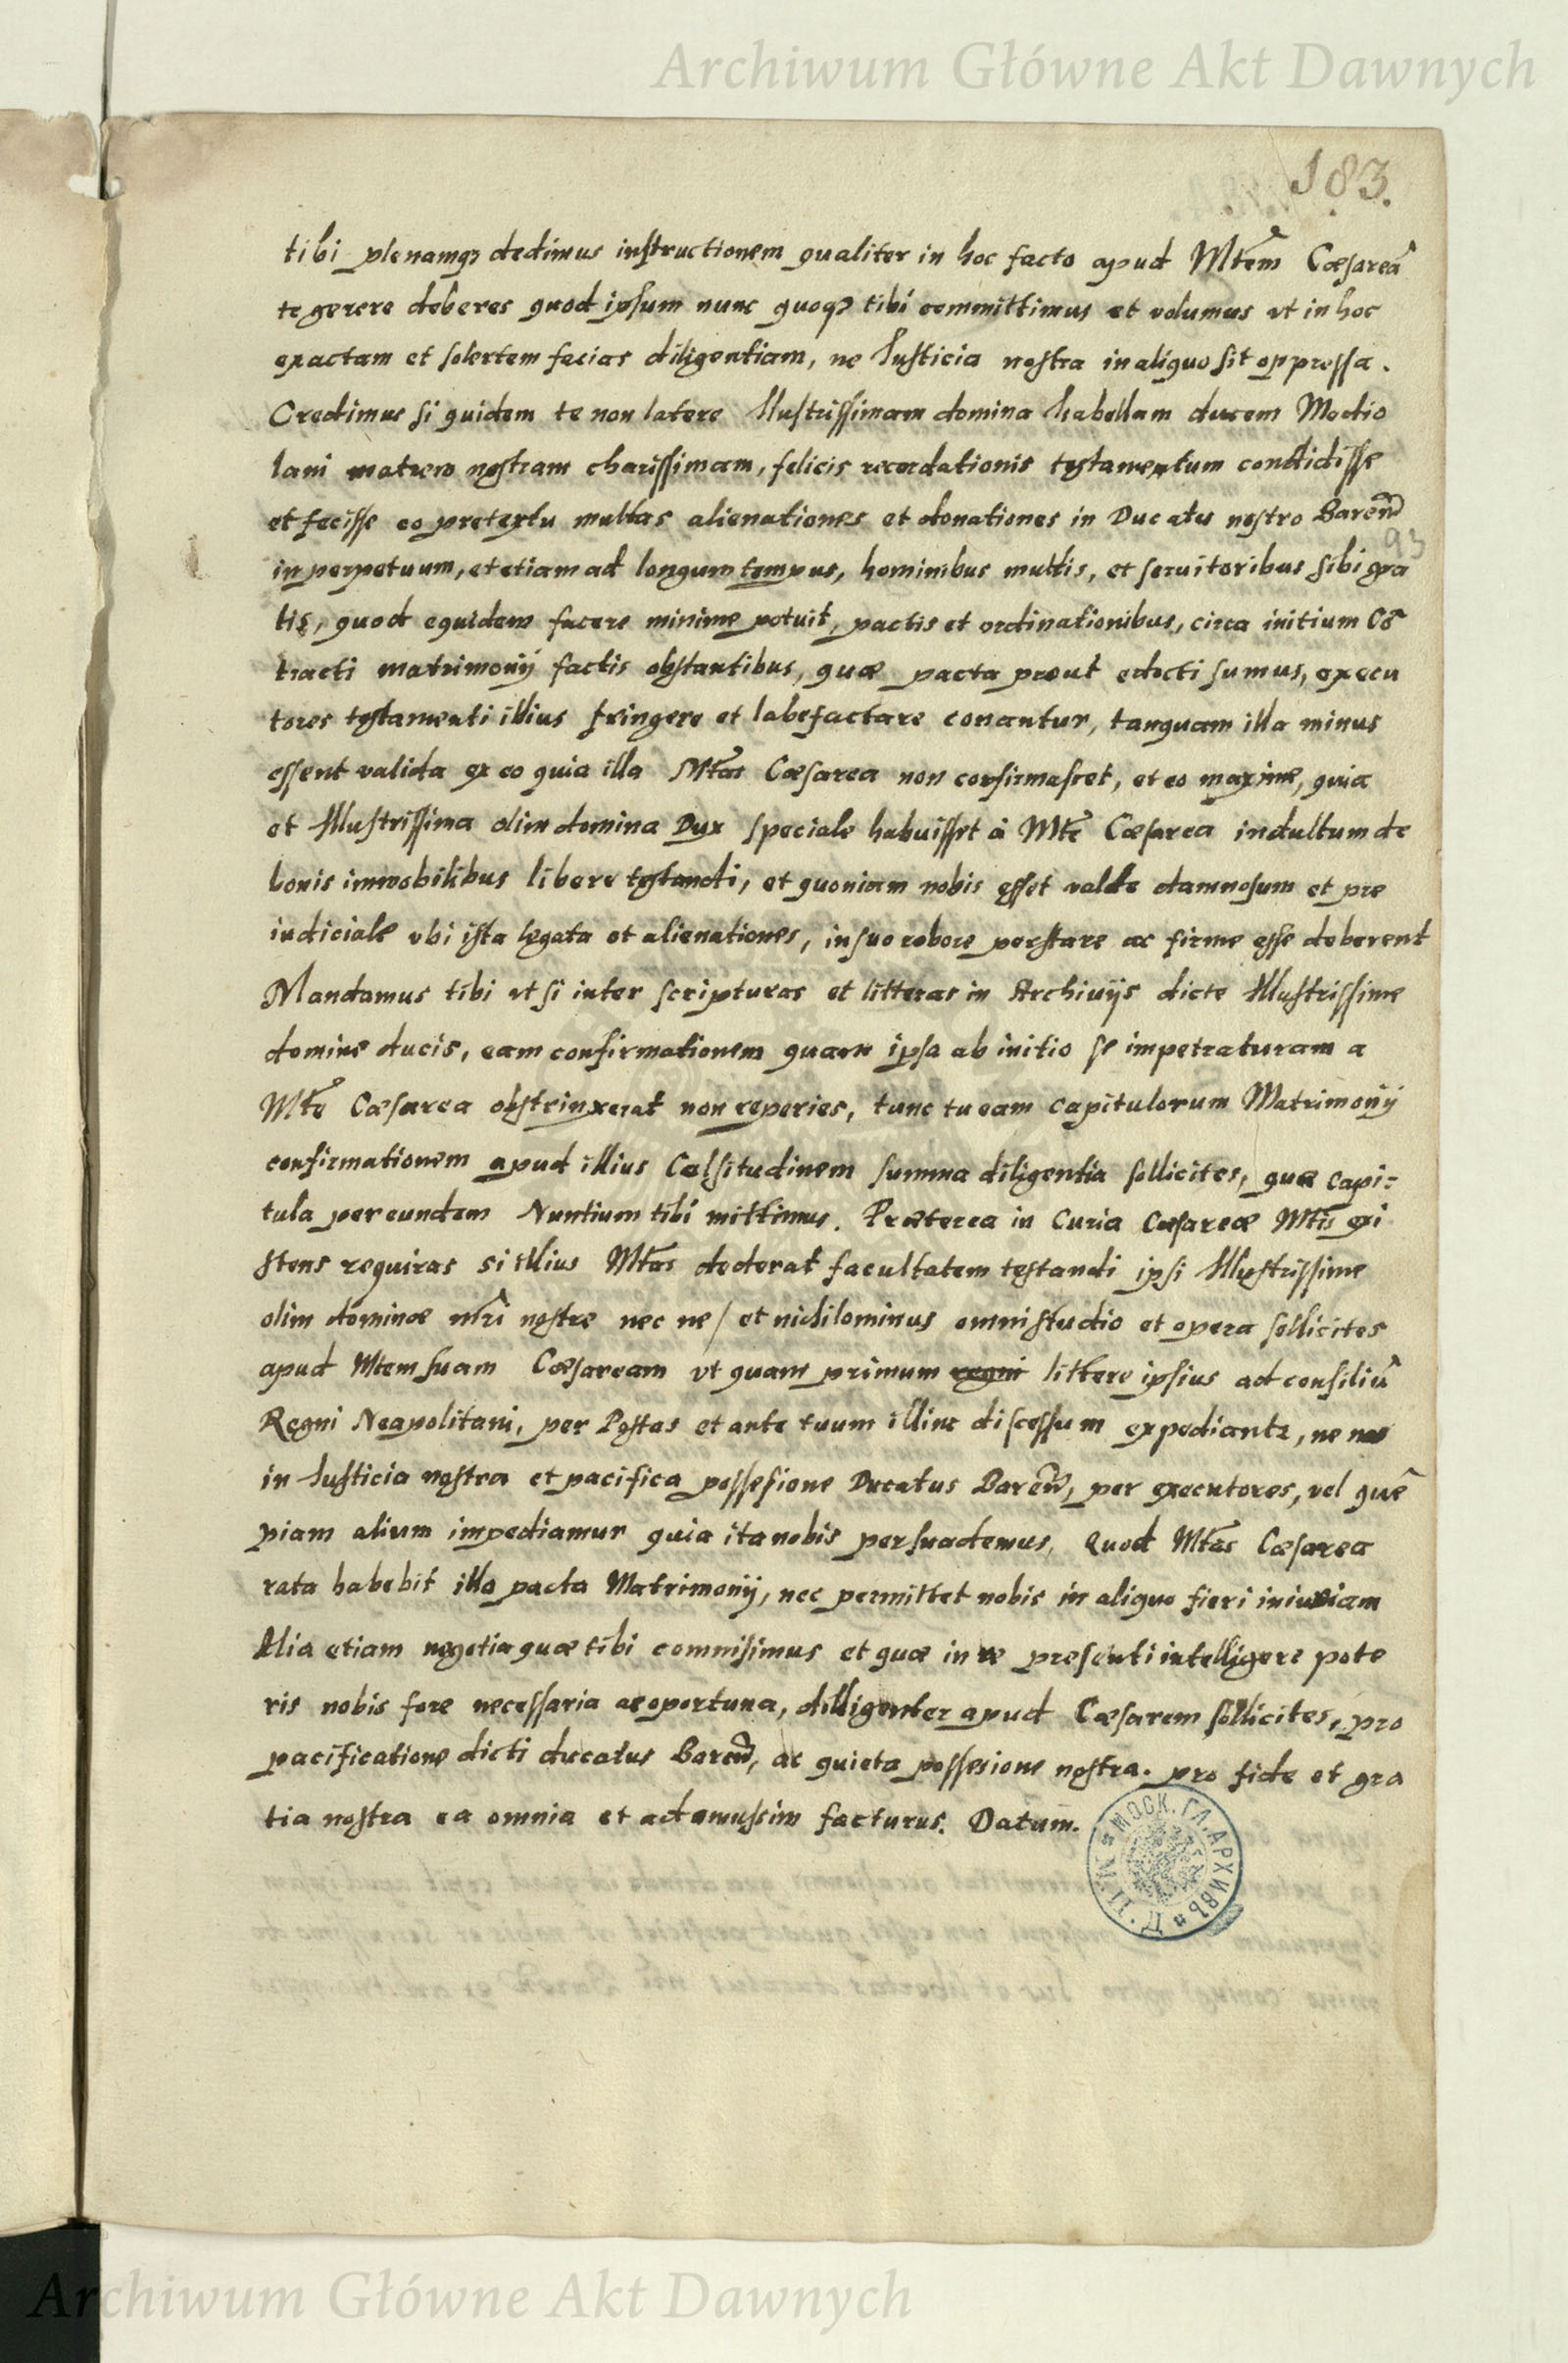 Archiwum Główne Akt Dawnych
183.
tibi plenamqȝ dedimus instructionem qualiter in hoc facto apud Mtem̃ Cæsareã
te gerere deberes quod ipsum nunc quoqȝ tibi committimus et volumus vt in hoc
exactam et solertem facias diligentiam, ne Iusticia nostra in aliquo sit oppressa.
Credimus si quidem te non latere Illustrissimam domina Isabellam ducem Medio
lani matrem nostram charissimam, felicis recordationis testamentum condidisse
et fecisse eo pretextu multas alienationes et donationes in Ducatu nostro Bareñ
93
in perpetuum, et etiam ad longum tempus, hominibus multis, et seruitoribus sibi gra
tis, quod equidem facere minime potuit, pactis et ordinationibus, circa initium Cõ
tracti matrimonij factis obstantibus, quæ pacta prout edocti sumus, execu
tores testamenti illius fringere et labefactare conantur, tanquam illa minus
essent valida ex eo quia illa Mtas̃ Cæsarea non confirmasset, et eo maxime, quia
et Illustrissima olim domina Dux speciale habuisset à Mtẽ Cæsarea indultum de
bonis immobilibus libere testandi, et quoniam nobis esset valde damnosum et pre
iudiciale vbi ista legata et alienationes, in suo robore perstare ac firme esse deberent
Mandamus tibi vt si inter scripturas et litteras in Archiuijs dicte Illustrissime
domine ducis, eam confirmationem quam ipsa ab initio se impetraturam a
Mtẽ Cæsarea obstrinxerat non reperies, tunc tu eam capitulorum Matrimonij
confirmationem apud illius Celsitudinem summa diligentia sollicites, quæ capi-
tula per eundem Nuntium tibi mittimus. Præterea in Curia Cæsareæ Mtis̃ exi
stens requiras si illius Mtas̃ dederat facultatem testandi ipsi Illustrissime
olim dominæ mr̃i nostre nec ne / et nichilominus omni studio et opera sollicites
apud Mtem suam Cæsaream vt quam primum regni littere ipsius ad consiliũ
Regni Neapolitani, per Postas et ante tuum illinc discessum expediantr, ne nos
in Iusticia nostra et pacifica possesione Ducatus Bareñ, per executores, vel quẽ
piam alium impediamur quia ita nobis persuademus, Quod Mtas̃ Cæsarea
rata habebit illa pacta Matrimonij, nec permittet nobis in aliquo fieri iniuriam
Alia etiam negotia quæ tibi commisimus et quæ in re presenti intelligere pote
ris nobis fore necessaria ac oportuna, dilligenter apud Cæsarem sollicites, pro
pacificatione dicti ducatus Bareñ, ac quieta possesione nostra. pro fide et gra
tia nostra ea omnia et ad amussim facturus. Datum.
МОСК. ГЛ. АРХИВЪ
Archiwum Główne Akt Dawnych